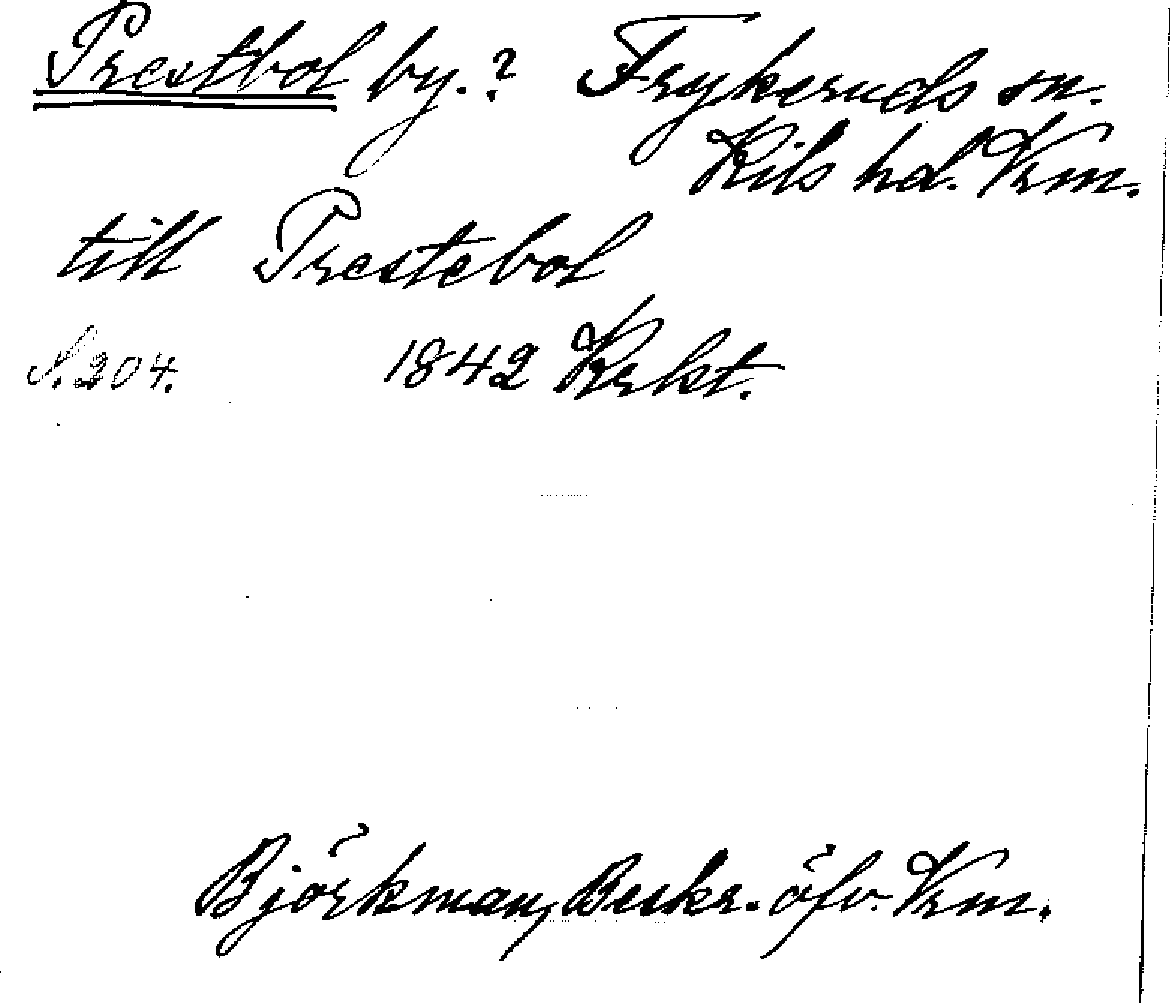 Prestbol by.? Frykeruds sn.
Kils hd. Vrm.
till Prestebol
S. 204. 1842 Krkt.
Björkman, Beskr. öfv. Vrm.